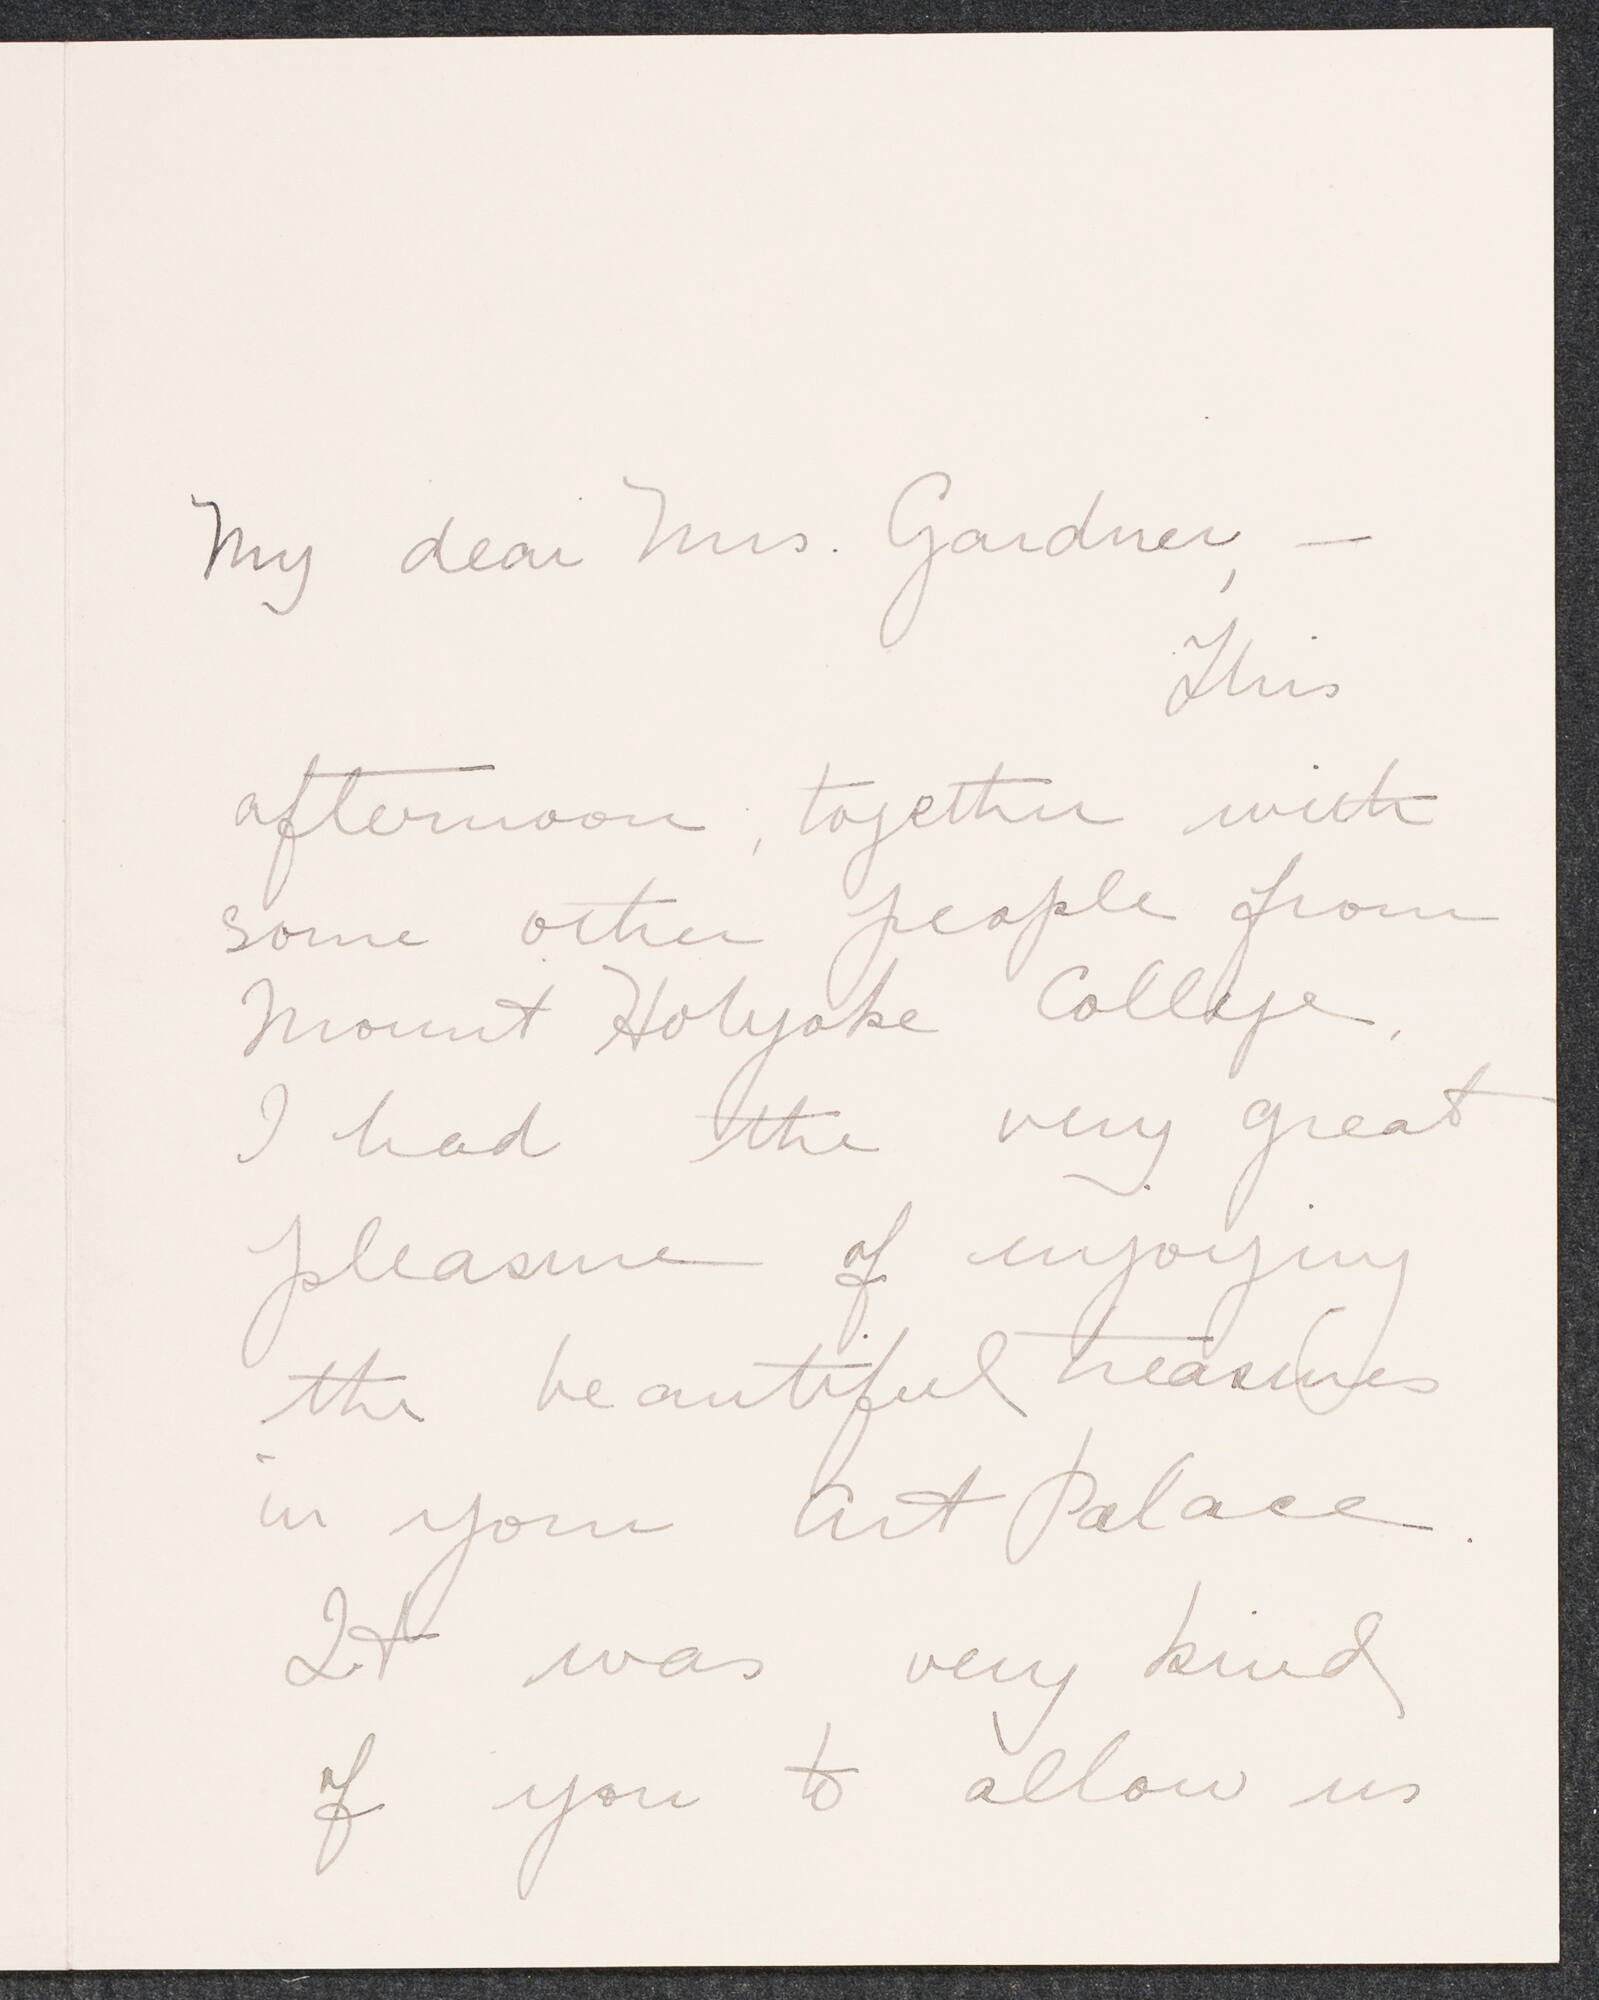 My dear Mrs. Gardner, —
This
afternoon, together with
some other people from
Mount Holyoke College,
I had the very great
pleasure of enjoying
the beautiful treasures
in your Art Palace.
It was very kind
of you to allow us